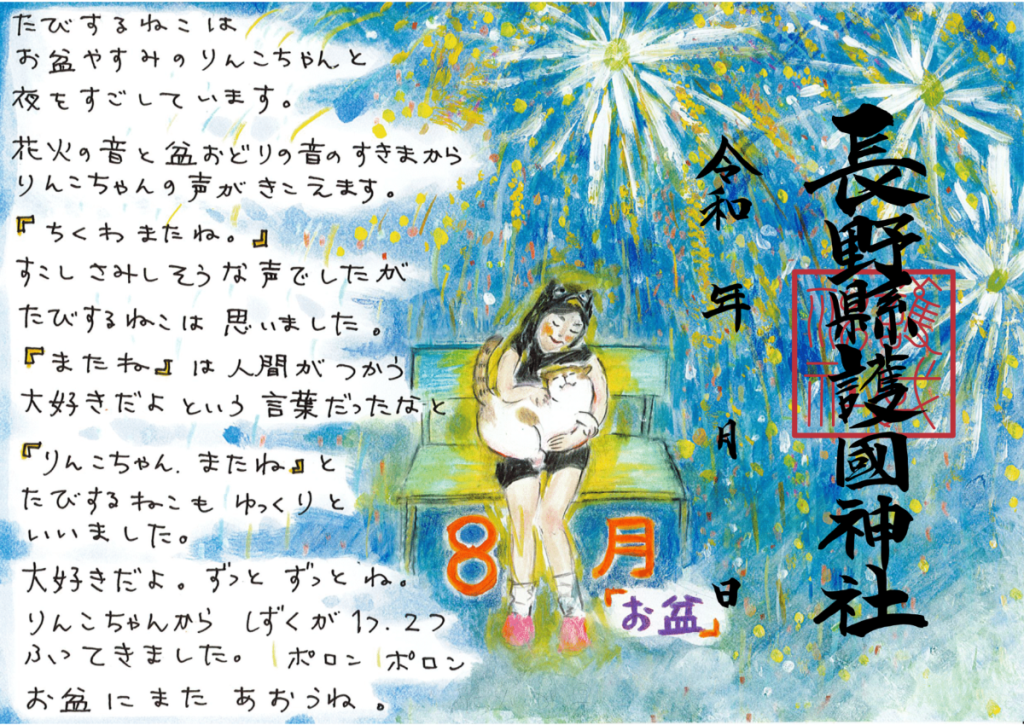 たびするねこは
お盆やすみのりんこちゃんと
夜をすごしています。
花火の音と盆おどりの音のすきまから
りんこちゃんの声がきこえます。
『ちくわまたね。』
すこしさみしそうな声でしたが
たびするねこは思いました。
『またね』は人間がつかう
大好きだよという言葉だったなと
『りんこちゃん.またね』と
たびするねこもゆっくりと
いいました。
大好きだよ。ずっとずっとね。
りんこちゃんからしずくが1つ.2つ
ふってきました。ポロンポロン
お盆にまたあおうね。
8月
「お盆」
長野縣護國神社
令和 年 月 日